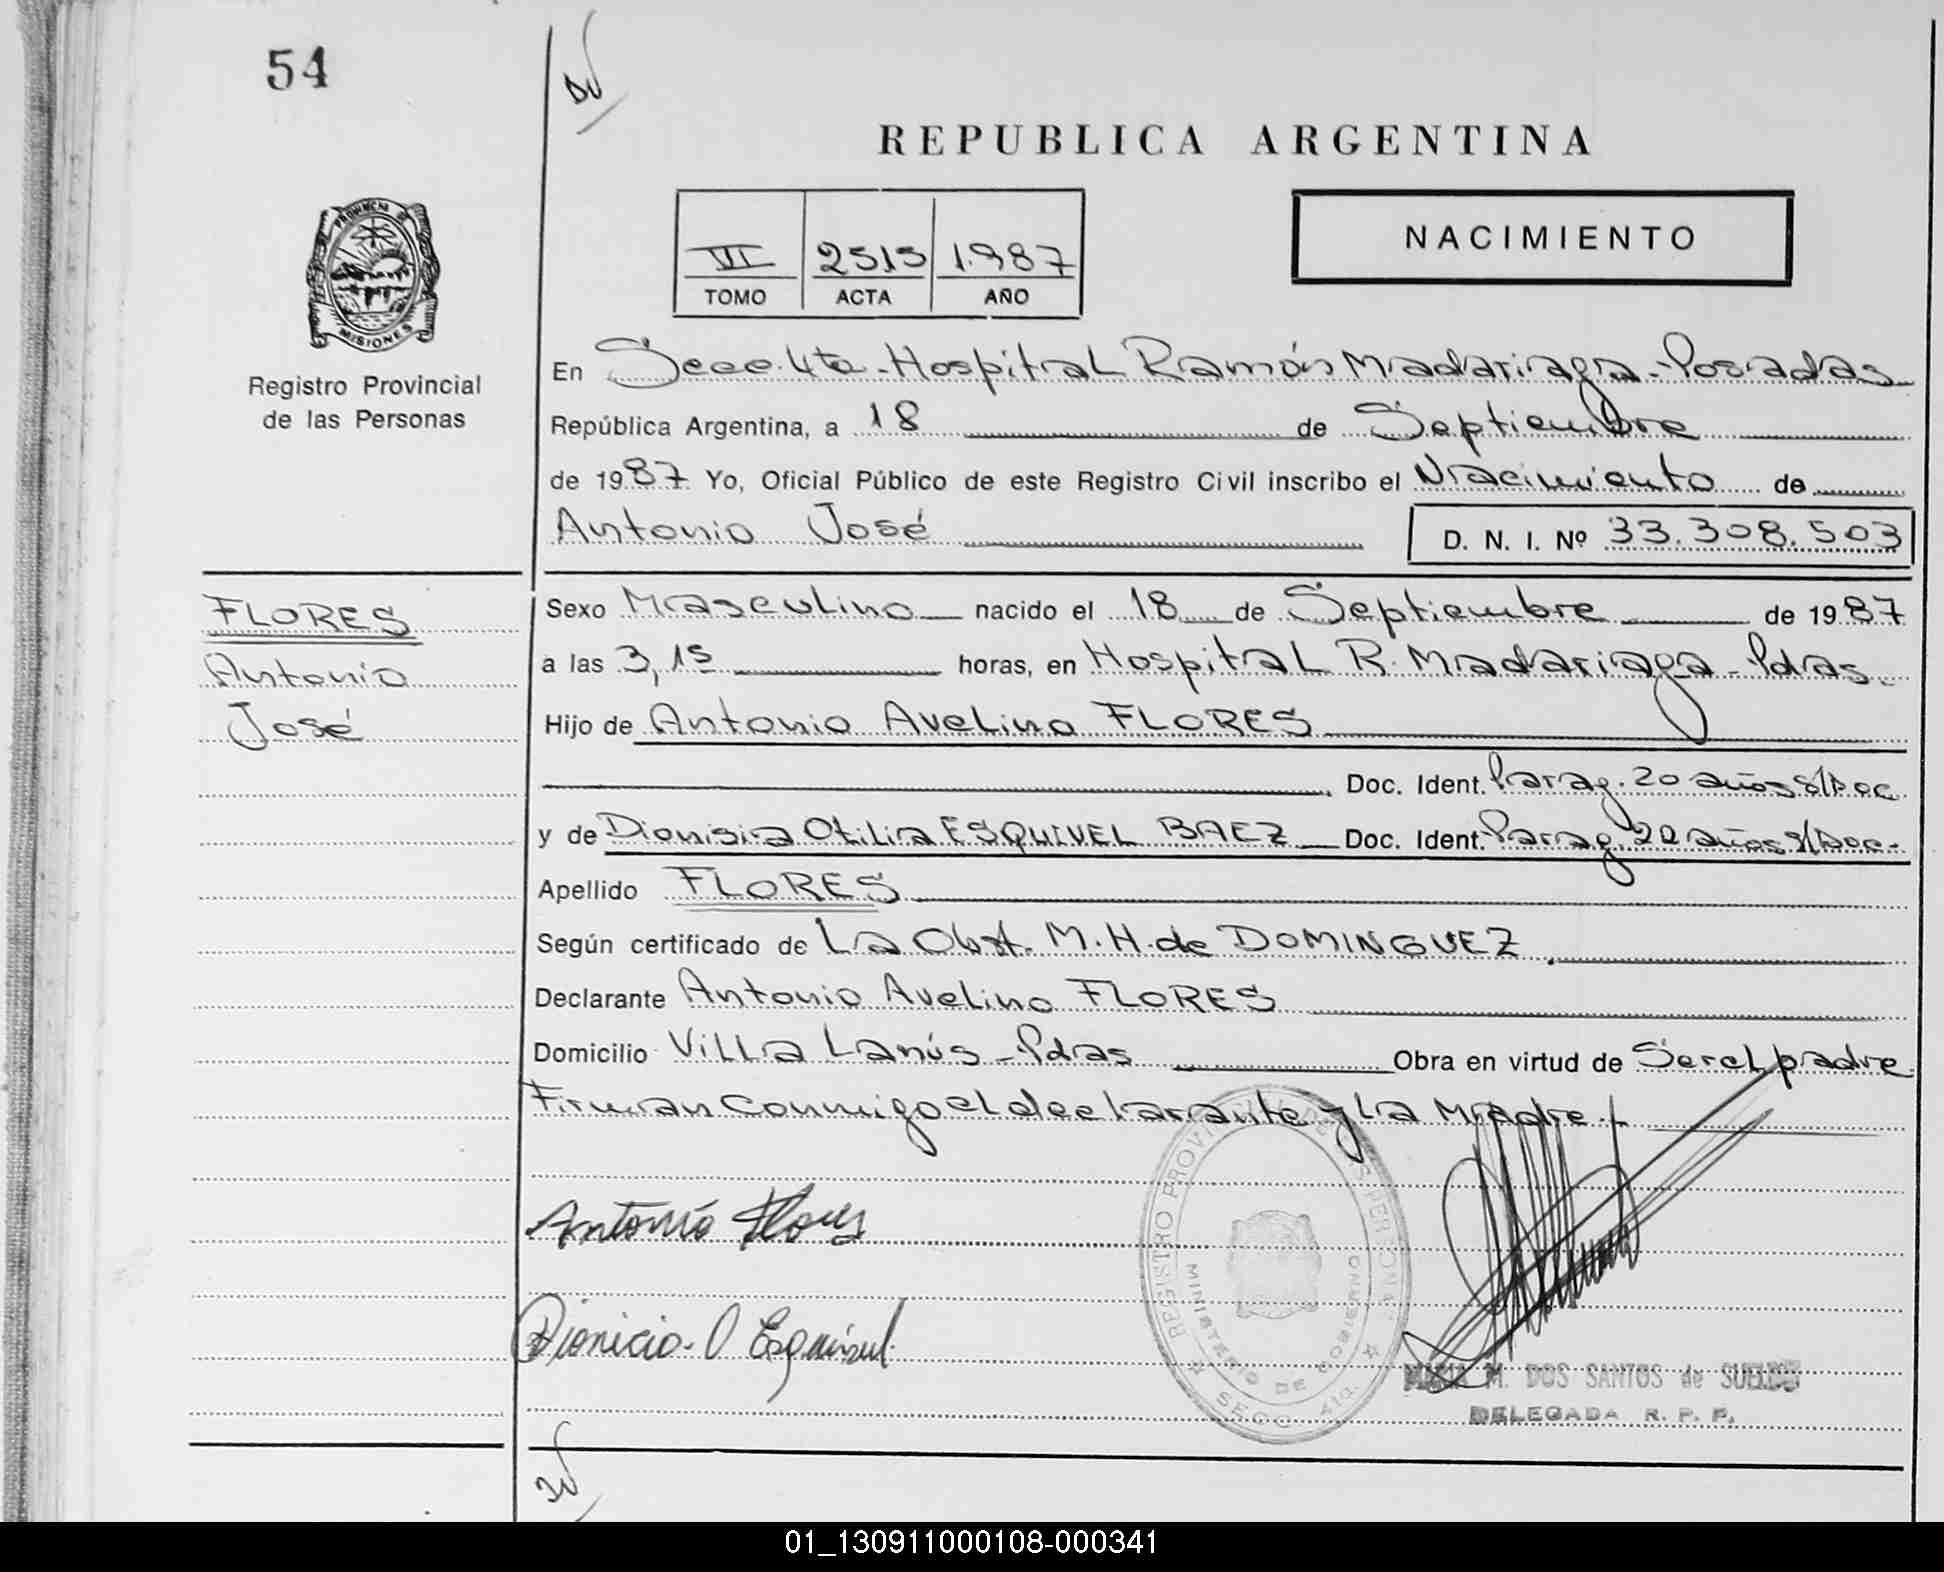 54
REPUBLICA ARGENTINA
VI 2515 1.987
TOMO ACTA AÑO
NACIMIENTO
PROVINCIA DE
MISIONES
Registro Provincial
de las Personas
En Secc. 4ta - Hospital Ramón Madariaga - Posadas
República Argentina, a 18 de Septiembre
de 1987 Yo, Oficial Público de este Registro Civil inscribo el Nacimiento de
Antonio José D. N. I. Nº 33.308.503
FLORES
Antonio
José
Sexo Masculino nacido el 18 de Septiembre de 1987
a las 3,15 horas, en Hospital R. Madariaga - Pdas.
Hijo de Antonio Avelino FLORES
Doc. Ident. Parag. 20 años s/Doc
y de Dionisia Otilia ESQUIVEL BAEZ Doc. Ident. Parag. 22 años s/Doc.
Apellido FLORES
Según certificado de La Obst. M. H. de DOMINGUEZ
Declarante Antonio Avelino FLORES
Domicilio Villa Lanús - Pdas Obra en virtud de Ser el padre
Firman conmigo el declarante y la Madre.
Antonio Flores
Dionicia O Esquivel
REGISTRO PROVINCIAL DE LAS PERSONAS
MINISTERIO DE GOBIERNO
SECC. 4ta.
M. DOS SANTOS de
DELEGADA R. P. P.
01_130911000108-000341